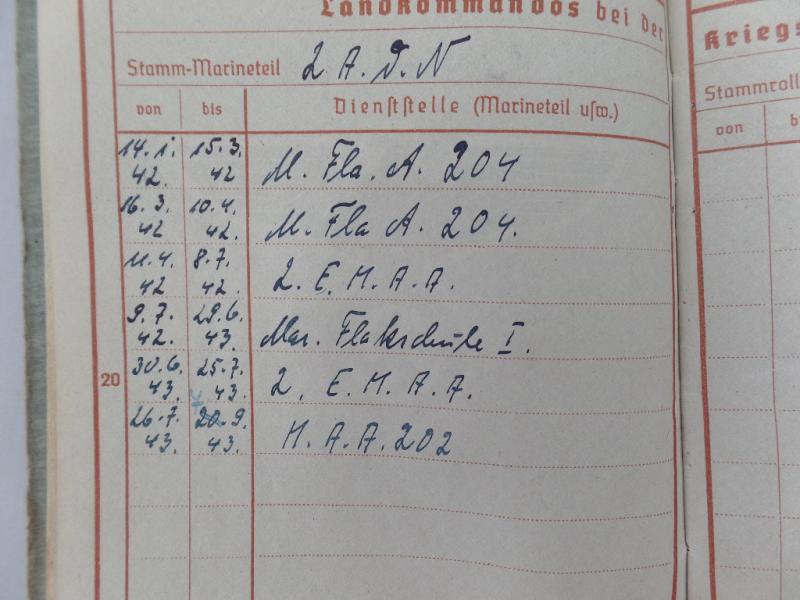 Landkommandos bei der
Stamm-Marineteil 2 A. D. N
von bis Dienststelle (Marineteil usw.)
14. 1. 42. 15. 3. 42 M. Fla. A. 204
16. 3. 42 10. 4. 42. M. Fla A. 204.
11. 4. 42 8. 7. 42. 2. E. M. A. A.
9. 7. 42. 29. 6. 43. Mar. Flakschule I.
20 30. 6. 43. 25. 7. 43. 2. E. M. A. A.
26. 7. 43. 20. 9. 43. M. A. A. 202
Kriegs
Stammroll
von b